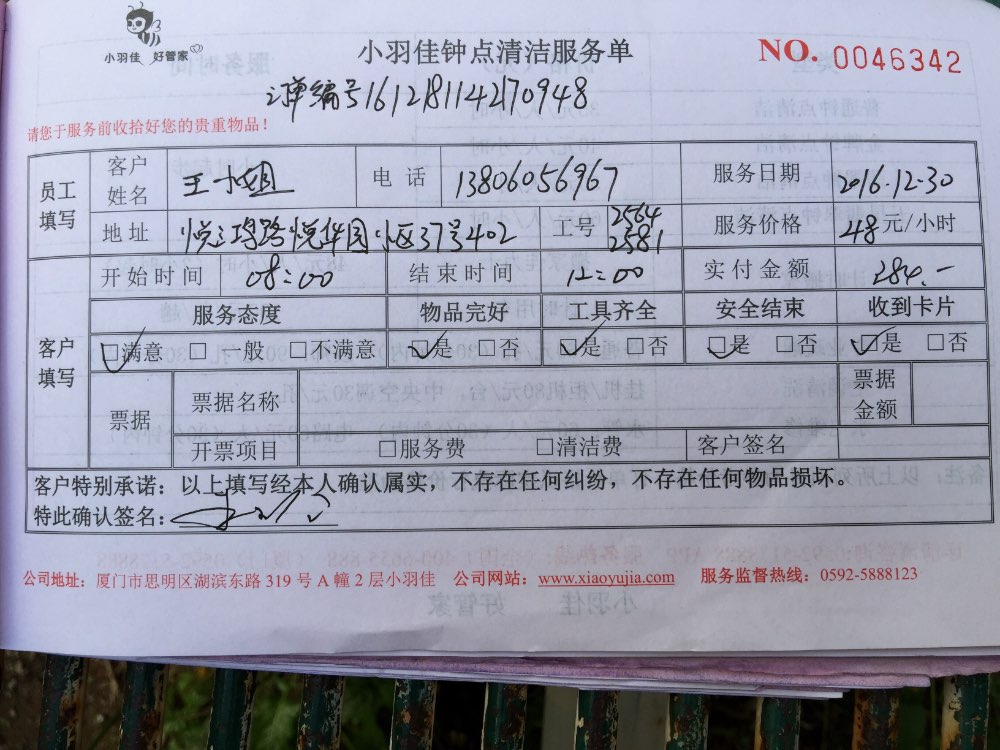 小羽佳 好管家
小羽佳钟点清洁服务单
NO. 0046342
订单编号161218114217 0948
请您于服务前收拾好您的贵重物品！
员工填写 客户姓名 王小姐 电话 13806056967 服务日期 2016.12.30
地址 悦鸿路悦华园小区37号402 工号 2564 2581 服务价格 48元/小时
开始时间 08:00 结束时间 12:00 实付金额 284.-
客户填写 服务态度 物品完好 工具齐全 安全结束 收到卡片
☑满意 □一般 □不满意 ☑是 □否 ☑是 □否 ☑是 □否 ☑是 □否
票据 票据名称 票据金额
开票项目 □服务费 □清洁费 客户签名
客户特别承诺：以上填写经本人确认属实，不存在任何纠纷，不存在任何物品损坏。
特此确认签名：
公司地址：厦门市思明区湖滨东路 319 号 A 幢 2 层小羽佳 公司网站：www.xiaoyujia.com 服务监督热线：0592-5888123